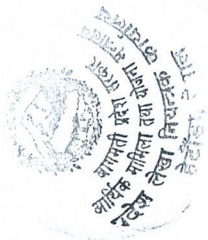 बागमती प्रदेश सरकार
आर्थिक मामिला तथा योजना मन्त्रालय
प्रदेश लेखा नियन्त्रक कार्यालय